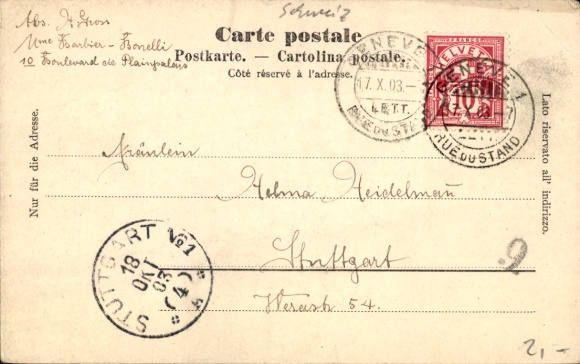 Schweiz
Carte postale
Postkarte. — Cartolina postale.
Côté réservé à l'adresse.
Abs.
Mme Barbier - Bonelli
10 Boulevard de Plainpalais
HELVETIA
FRANCO
10
GENÈVE
17.X.03.–
LETT.
RUE DU STAND
GENÈVE 1
RUE DU STAND
Nur für die Adresse.
Lato riservato all' indirizzo.
Fräulein
Helma Heidelmañ
Stuttgart
STUTTGART No 1
18
OKT
03
(4)
54.
9
2,–